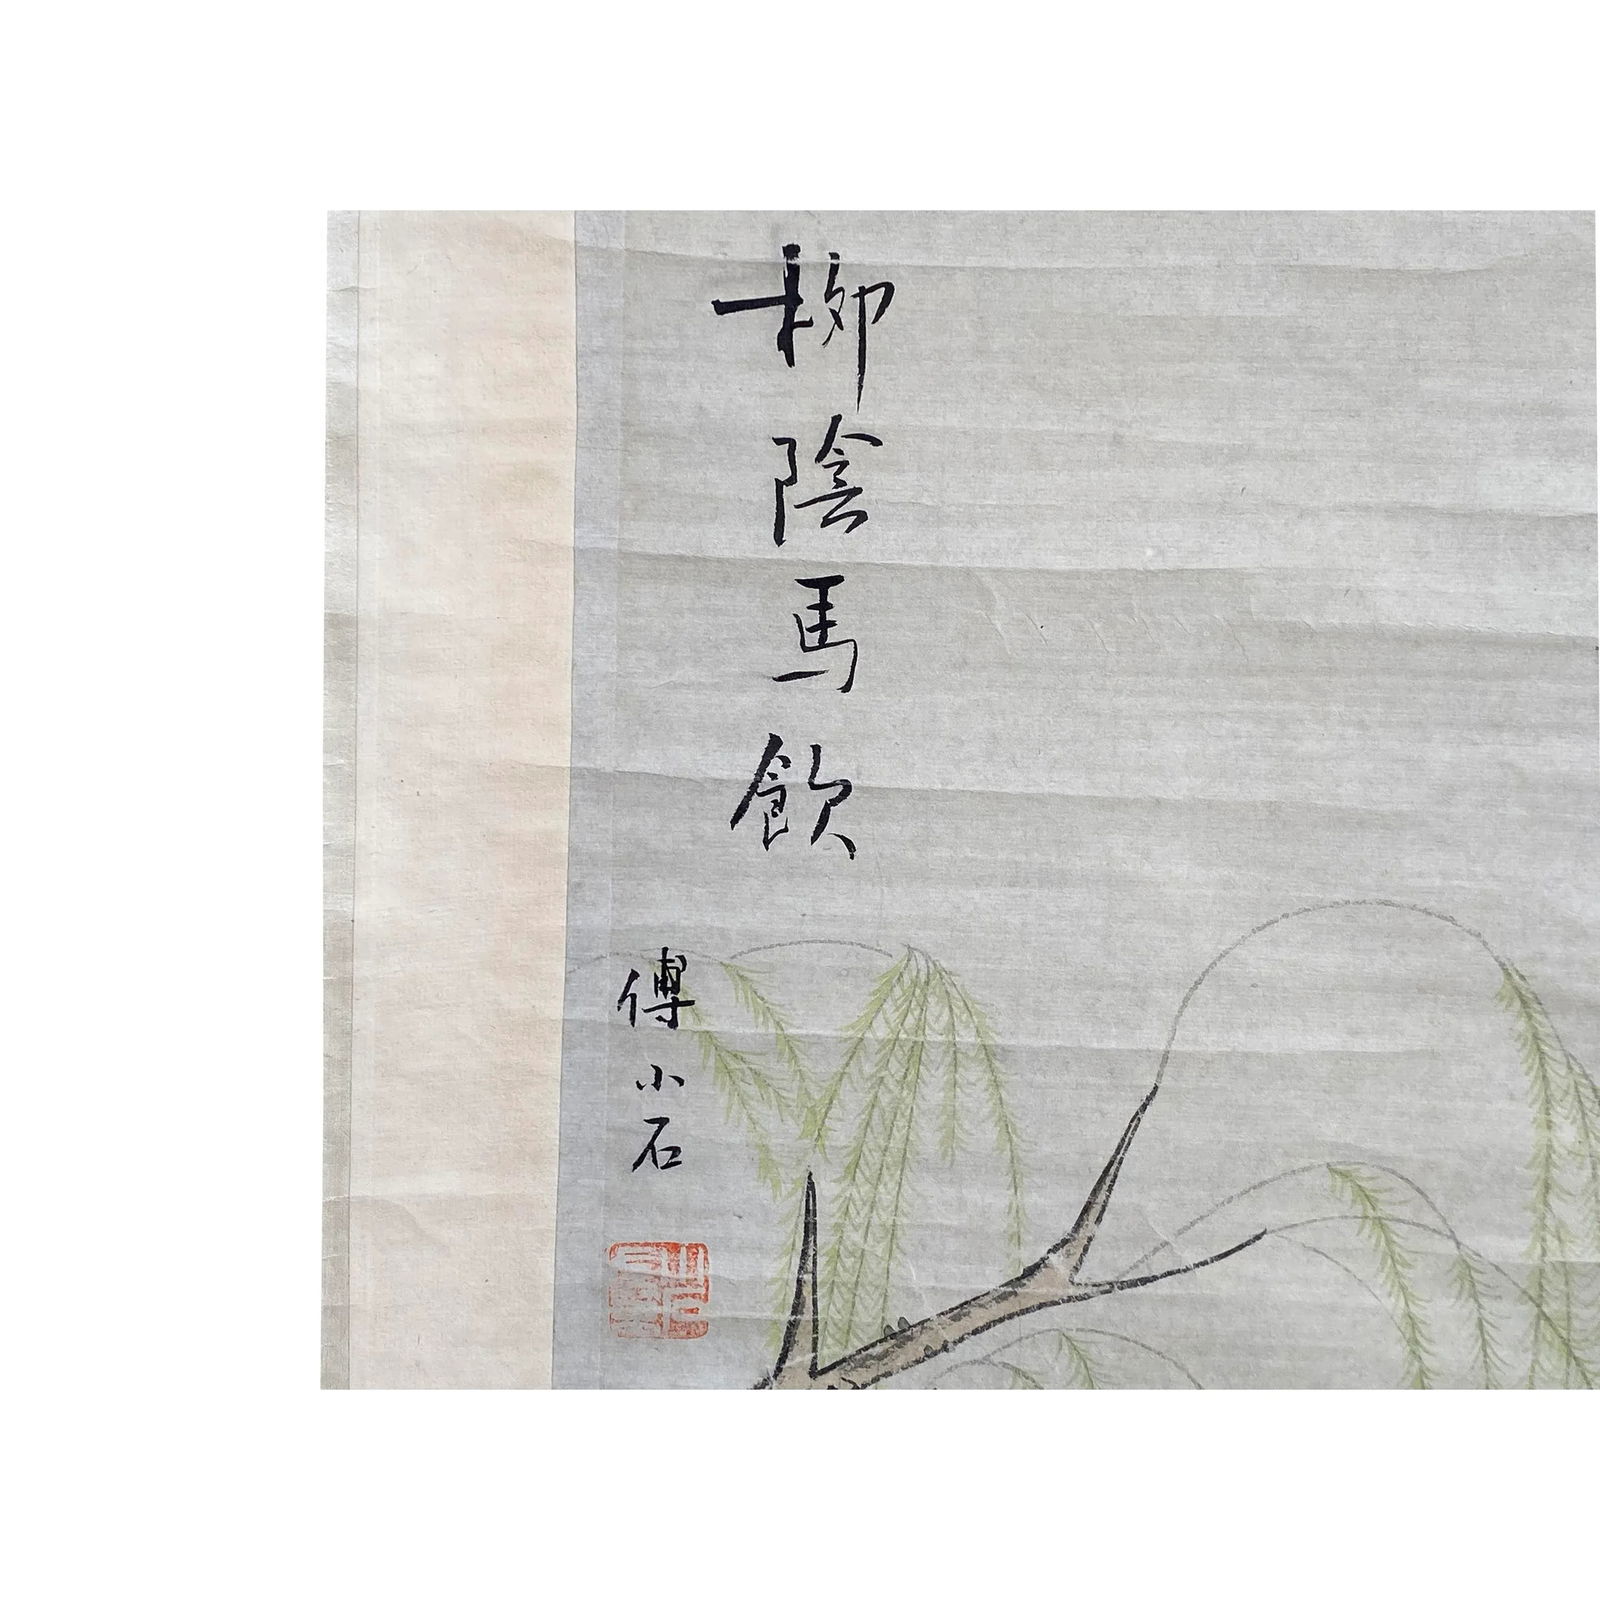 柳陰馬飲
傅小石